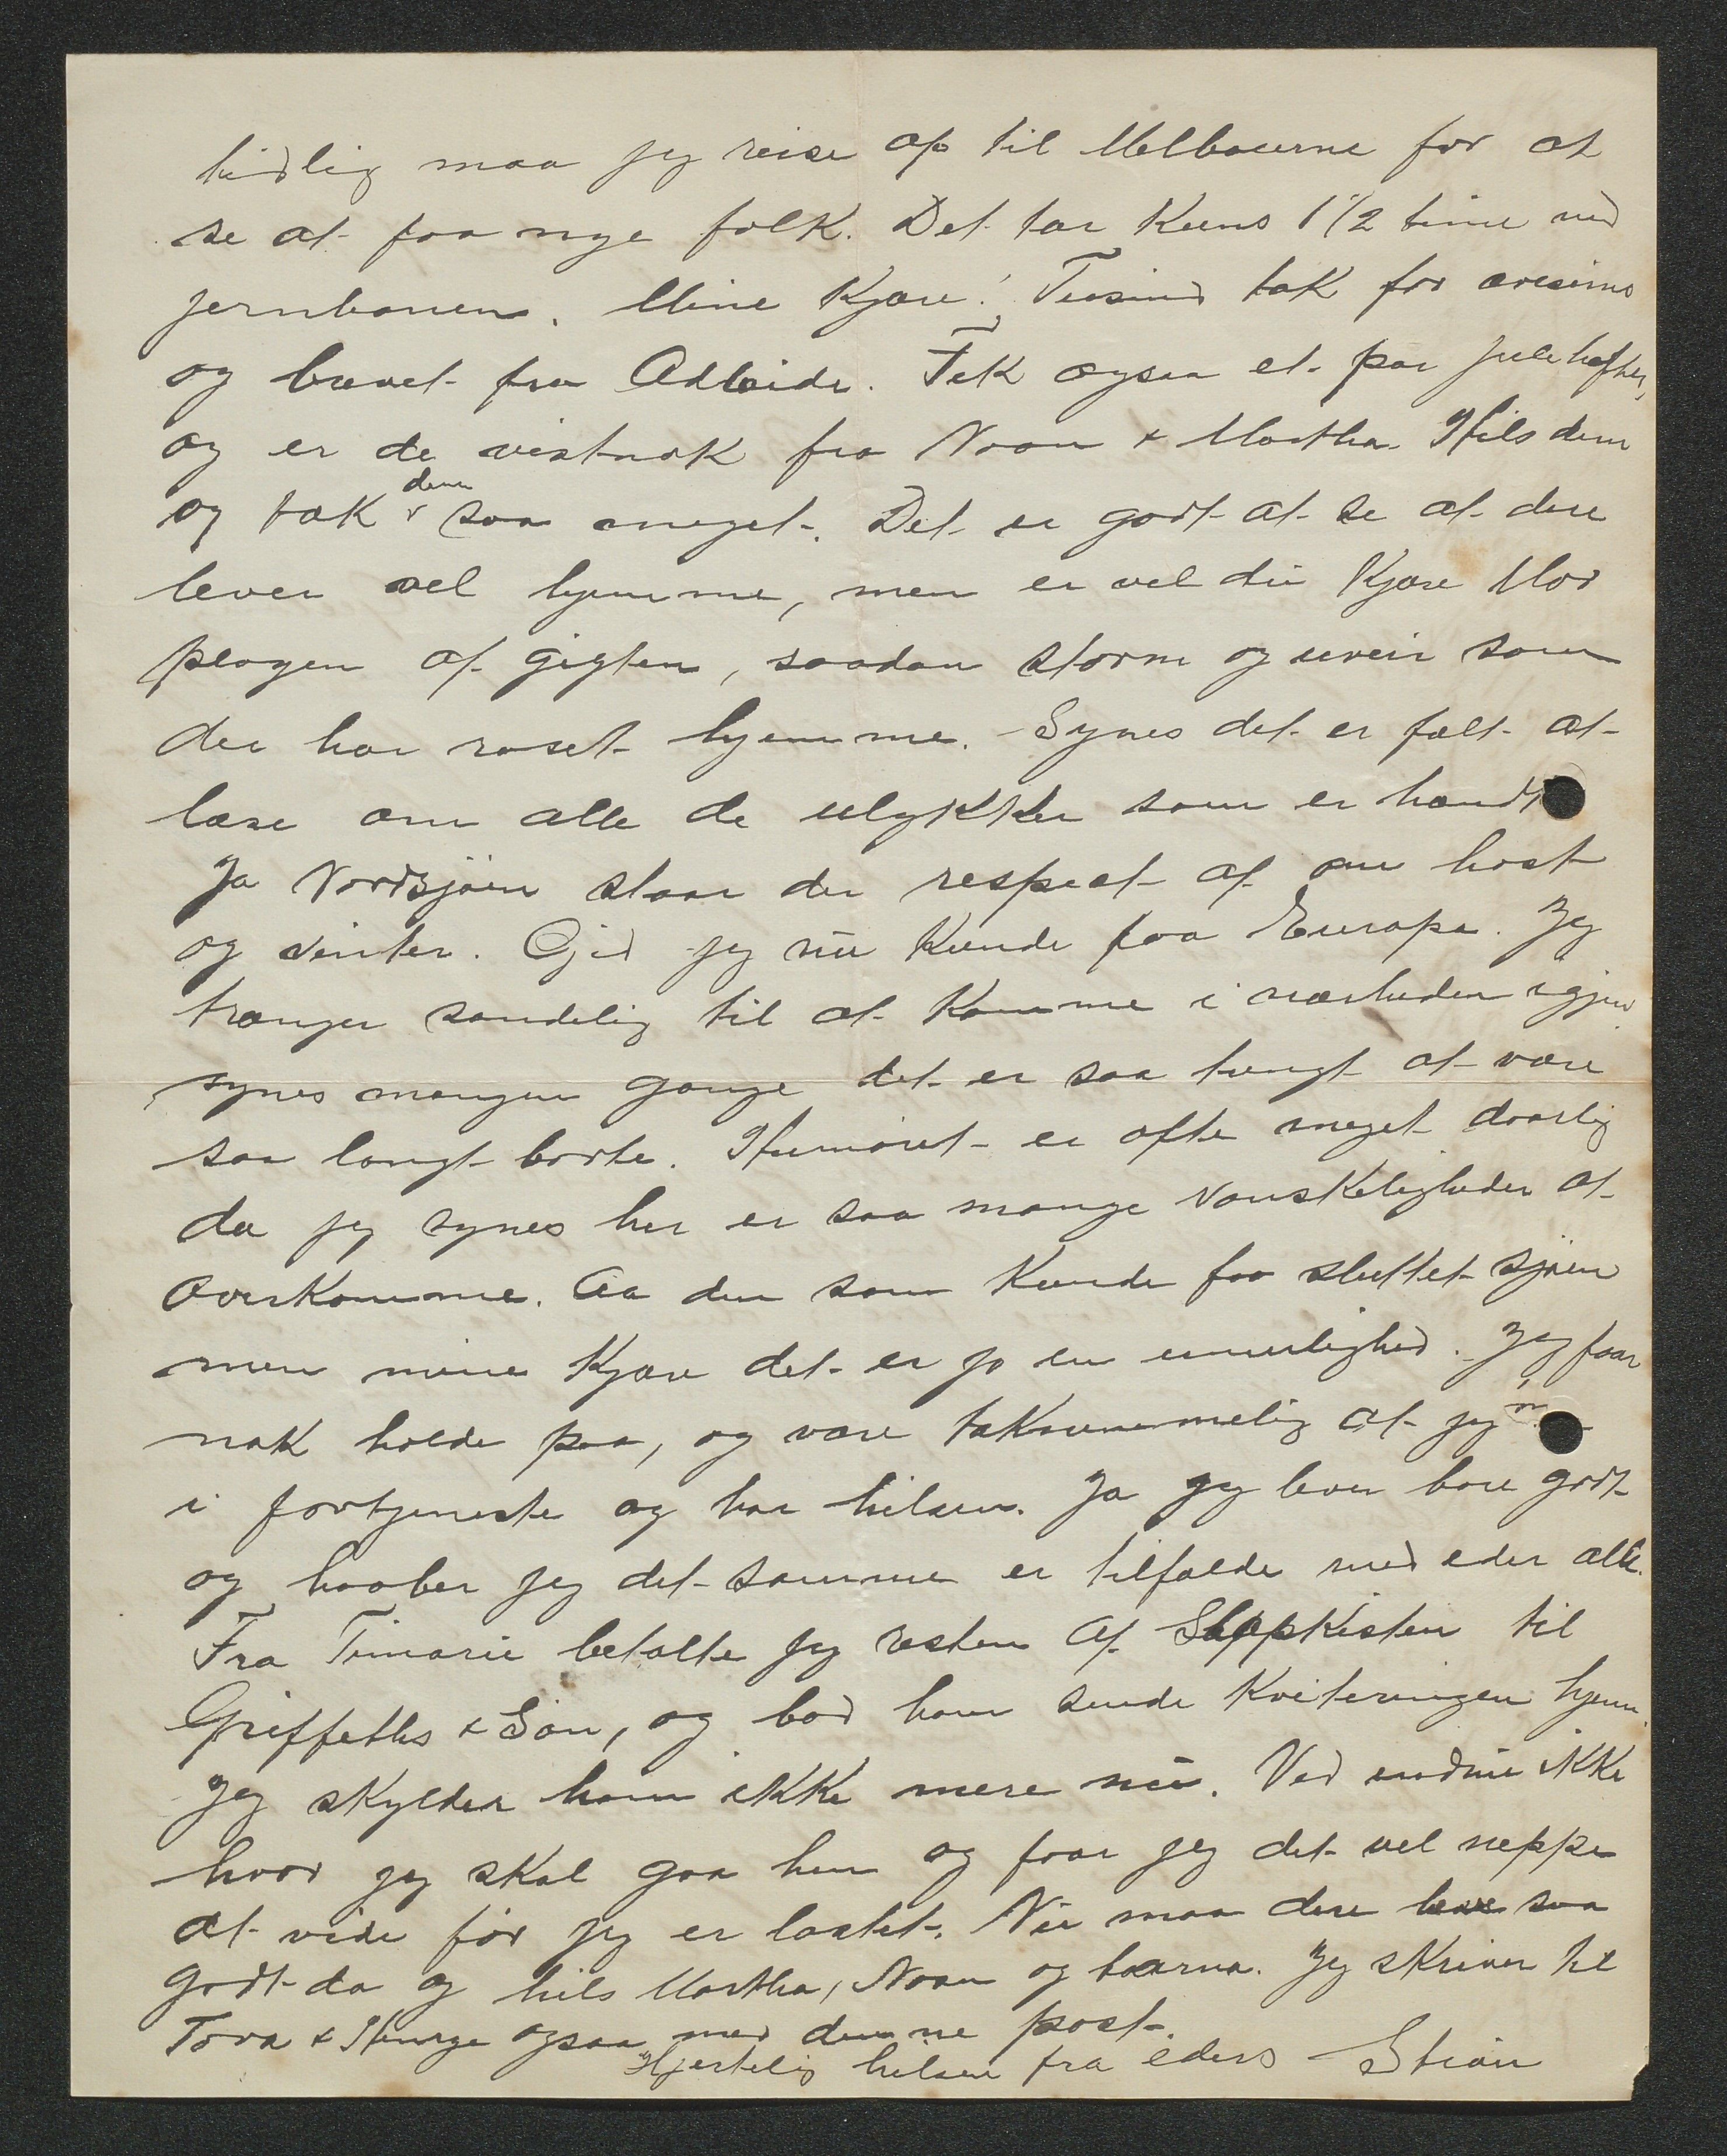 tidlig maa jeg reise op til Melbourne for at
se at faa nye folk. Det tar kuns 1 1/2 time med
jernbanen. Mine Kjære! Tusind tak for aviserne
og brevet fra Adlaide. Fik ogsaa et par julehefter,
og er de vistnok fra Noan & Martha. Hils dem
og tak dem saa meget. Det er godt at se at dere
lever vel hjemme, men er vel du Kjære Mor
plagen af gigten, saadan storm og uveir som
der har raset hjemme. Synes det er fælt at
læse om alle de ulykker som er hændt
Ja Nordsjøen staar der respect af om høst
og vinter. Gid jeg nu kunde faa Europa. Jeg
trænger sandelig til at komme i nærheden igjen
synes mangen gange det er saa tungt at være
saa langt borte. Humøret er ofte meget daarlig
da jeg synes her er saa mange vanskeligheder at
overkomme. Aa den som kunde faa sluttet sjøen
men mine Kjære det er jo en umulighed. Jeg faar
nok holde paa, og være taknemmelig at jeg
i fortjeneste og har helsen. Ja jeg lever bare godt
og haaber jeg det samme er tilfælde med eder alle.
Fra Timaru betalte jeg resten af Slopkisten til
Griffeths & Son, og bad ham sende kviteringen hjem.
Jeg skylder ham ikke mere nu. Ved endnu ikke
hvor jeg skal gaa hen og faar jeg det vel neppe
at vide før jeg er lastet. Nu maa dere leve saa
godt da og hils Martha, Noan og barna. Jeg skriver til
Tora & Helge ogsaa med denne post.
Hjertelig hilsen fra eders Stian